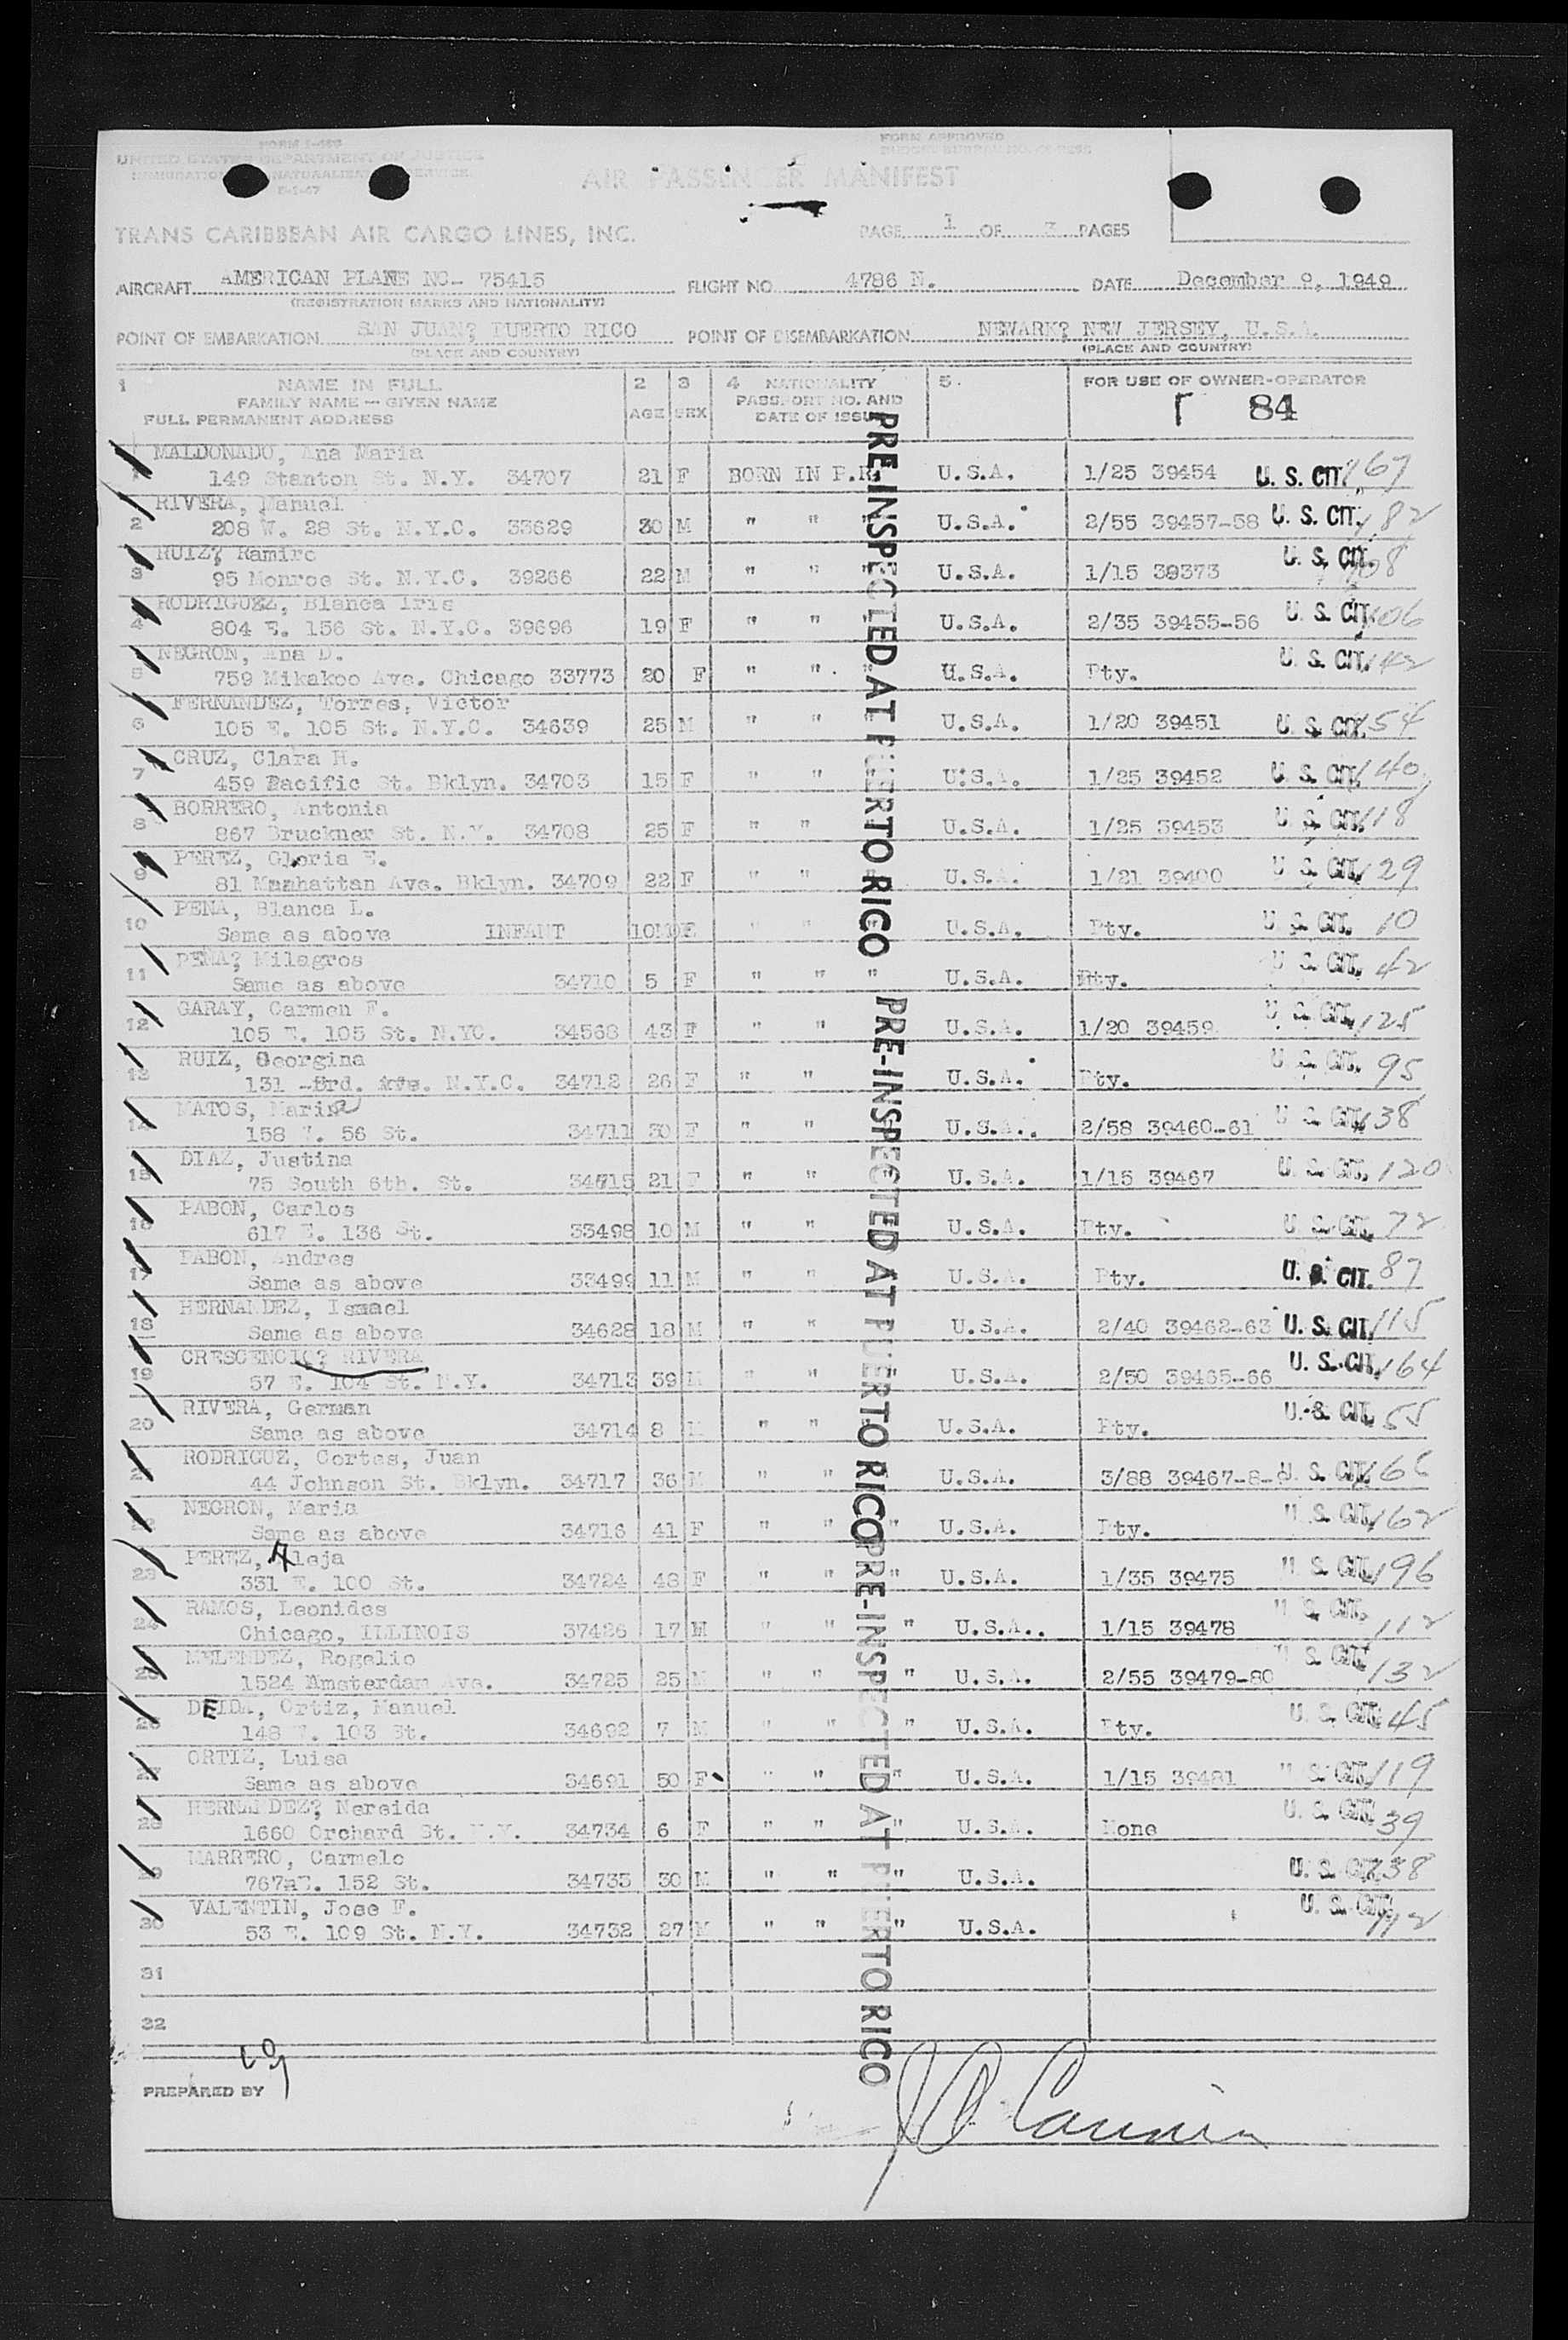 FORM I-466
UNITED STATES DEPARTMENT OF JUSTICE
IMMIGRATION NATURALIZATION SERVICE
FORM APPROVED
AIR PASSENGER MANIFEST
TRANS CARIBBEAN AIR CARGO LINES, INC.
PAGE 1 OF 3 PAGES
AIRCRAFT AMERICAN PLANE NC- 75415 FLIGHT NO 4786 N. DATE December 9, 1949
(REGISTRATION MARKS AND NATIONALITY)
POINT OF EMBARKATION SAN JUAN? PUERTO RICO POINT OF DISEMBARKATION NEWARK? NEW JERSEY, U.S.A.
(PLACE AND COUNTRY) (PLACE AND COUNTRY)
1 NAME IN FULL 2 3 4 NATIONALITY 5. FOR USE OF OWNER-OPERATOR
FAMILY NAME — GIVEN NAME AGE SEX PASSPORT NO. AND
FULL PERMANENT ADDRESS DATE OF ISSUE 84
MALDONADO, Ana Maria
1 149 Stanton St. N.Y. 34707 21 F BORN IN P.R. U.S.A. 1/25 39454 U. S. CIT. 167
RIVERA, Manuel
2 208 W. 28 St. N.Y.C. 33629 30 M " " " U.S.A. 2/55 39457-58 U. S. CIT. 182
RUIZ? Ramiro
3 95 Monroe St. N.Y.C. 39266 22 M " " " U.S.A. 1/15 39373 U. S. CIT. 108
RODRIGUEZ, Blanca Iris
4 804 E. 156 St. N.Y.C. 39696 19 F " " " U.S.A. 2/35 39455-56 U. S. CIT. 106
NEGRON, Ana D.
5 759 Mikakoo Ave. Chicago 33773 20 F " " " U.S.A. Pty. U. S. CIT. 142
FERNANDEZ, Torres, Victor
6 105 E. 105 St. N.Y.C. 34639 25 M " " U.S.A. 1/20 39451 U. S. CIT. 154
CRUZ, Clara H.
7 459 Pacific St. Bklyn. 34703 15 F " " U.S.A. 1/25 39452 U. S. CIT. 140
BORRERO, Antonia
8 867 Bruckner St. N.Y. 34708 25 F " " U.S.A. 1/25 39453 U. S. CIT. 118
PEREZ, Gloria E.
9 81 Manhattan Ave. Bklyn. 34709 22 F " " U.S.A. 1/21 39400 U. S. CIT. 129
PENA, Blanca L.
10 Same as above INFANT 10MO F " " " U.S.A. Pty. U. S. CIT. 10
PENA? Milagros
11 Same as above 34710 5 F " " " U.S.A. Pty. U. S. CIT. 42
GARAY, Carmen F.
12 105 E. 105 St. N.YC. 34568 43 F " " U.S.A. 1/20 39459 U. S. CIT. 125
RUIZ, Georgina
13 131 -3rd. Ave. N.Y.C. 34712 26 F " " U.S.A. Pty. U. S. CIT. 95
MATOS, Maria
14 158 W. 56 St. 34711 30 F " " U.S.A. 2/58 39460-61 U. S. CIT. 138
DIAZ, Justina
15 75 South 6th. St. 34715 21 F " " U.S.A. 1/15 39467 U. S. CIT. 120
PABON, Carlos
16 617 E. 136 St. 33498 10 M " " U.S.A. Pty. U. S. CIT. 72
PABON, Andres
17 Same as above 33499 11 M " " U.S.A. Pty. U. S. CIT. 87
HERNANDEZ, Ismael
18 Same as above 34628 18 M " " U.S.A. 2/40 39462-63 U. S. CIT. 115
CRESCENCIO? RIVERA
19 57 E. 104 St. N.Y. 34713 39 M " " U.S.A. 2/50 39465-66 U. S. CIT. 164
RIVERA, German
20 Same as above 34714 8 M " " U.S.A. Pty. U. S. CIT. 55
RODRIGUZ, Cortes, Juan
21 44 Johnson St. Bklyn. 34717 36 M " " U.S.A. 3/88 39467-8-9 U. S. CIT. 166
NEGRON, Maria
22 Same as above 34716 41 F " " " U.S.A. Pty. U. S. CIT. 162
PEREZ, Aleja
23 331 E. 100 St. 34724 48 F " " " U.S.A. 1/35 39475 U. S. CIT. 196
RAMOS, Leonides
24 Chicago, ILLINOIS 37426 17 M " " " U.S.A.. 1/15 39478 U. S. CIT. 112
MELENDEZ, Rogelio
25 1524 Amsterdam Ave. 34725 25 M " " " U.S.A. 2/55 39479-80 U. S. CIT. 132
DEIDA, Ortiz, Manuel
26 148 W. 103 St. 34692 7 M " " " U.S.A. Pty. U. S. CIT. 45
ORTIZ, Luisa
27 Same as above 34691 50 F " " " U.S.A. 1/15 39481 U. S. CIT. 119
HERNANDEZ? Nereida
28 1660 Orchard St. N.Y. 34734 6 F " " " U.S.A. None U. S. CIT. 39
MARRERO, Carmelo
29 767 E. 152 St. 34733 30 M " " " U.S.A. U. S. CIT. 138
VALENTIN, Jose F.
30 53 E. 109 St. N.Y. 34732 27 M " " " U.S.A. U. S. CIT. 112
31
32
PREPARED BY
PRE-INSPECTED AT PUERTO RICO
PRE-INSPECTED AT PUERTO RICO
PRE-INSPECTED AT PUERTO RICO